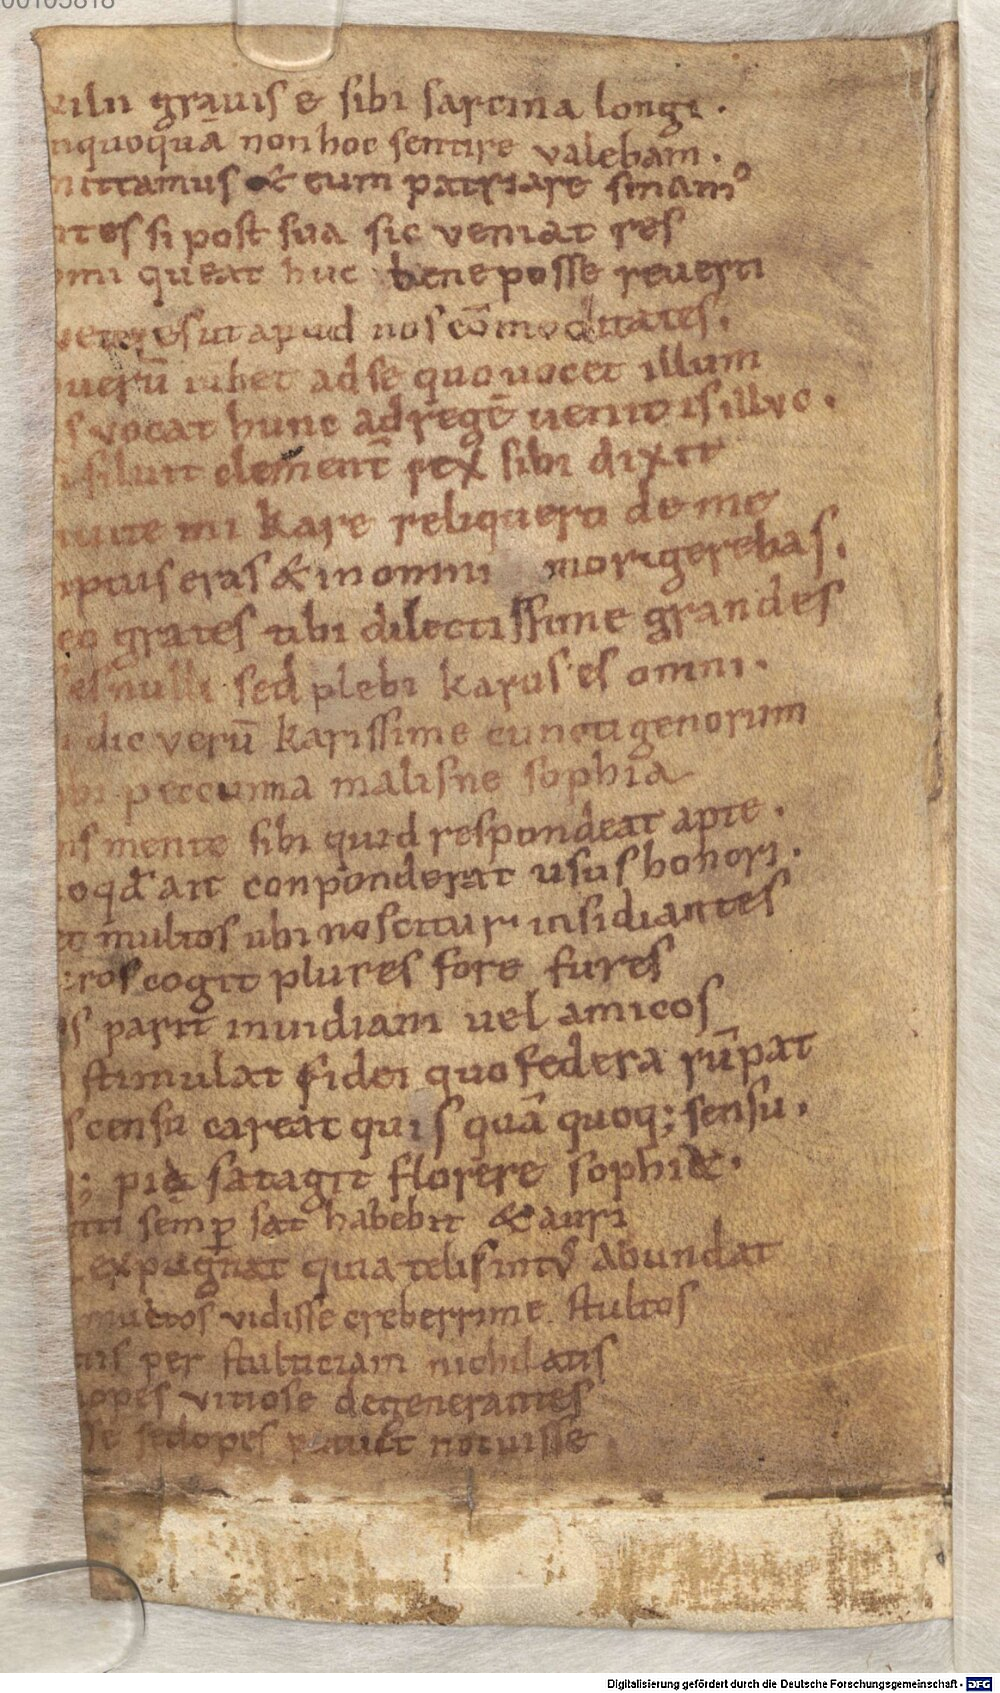 00105818
gravis & sibi sarcina longe .
nquoquā non hoc sentire valebam .
mittamus & eum patriare sinamꝰ
ntes si post sua sic veniat res
omi queat huc bene posse reverti
veteres ut apud nos cōmoditates .
verū iubet ad se quo vocet illum
s vocat hunc ad regē venit is illvc .
siluit clement̄ rex sibi dixit
mi kare reliquero de me
ptus eras & in omni morigerebas .
eo grates tibi dilectissime grandes
es nulli sed plebi karus es omni .
dic verū karissime cunctigenorum
bi peccunia malisne sophia
ns mente sibi quid respondeat apte .
o qđ ait conponderat usus honori .
et multos ubi noscitur insidiantes
ros cogit plures fore fures
os parit inuidiam vel amicos
stimulat fidei quo federa rūpat
s censu careat quisquā quoq; sensu .
; pie satagit florere sophie .
semp̄ sat habebit & auri
expugnat quia telis intꝰ abundat
muetos vidisse creberrime stultos
tis per stulticiam nichilatis
opes vitiose degenerantes
se sed opes nocuisse
Digitalisierung gefördert durch die Deutsche Forschungsgemeinschaft - DFG